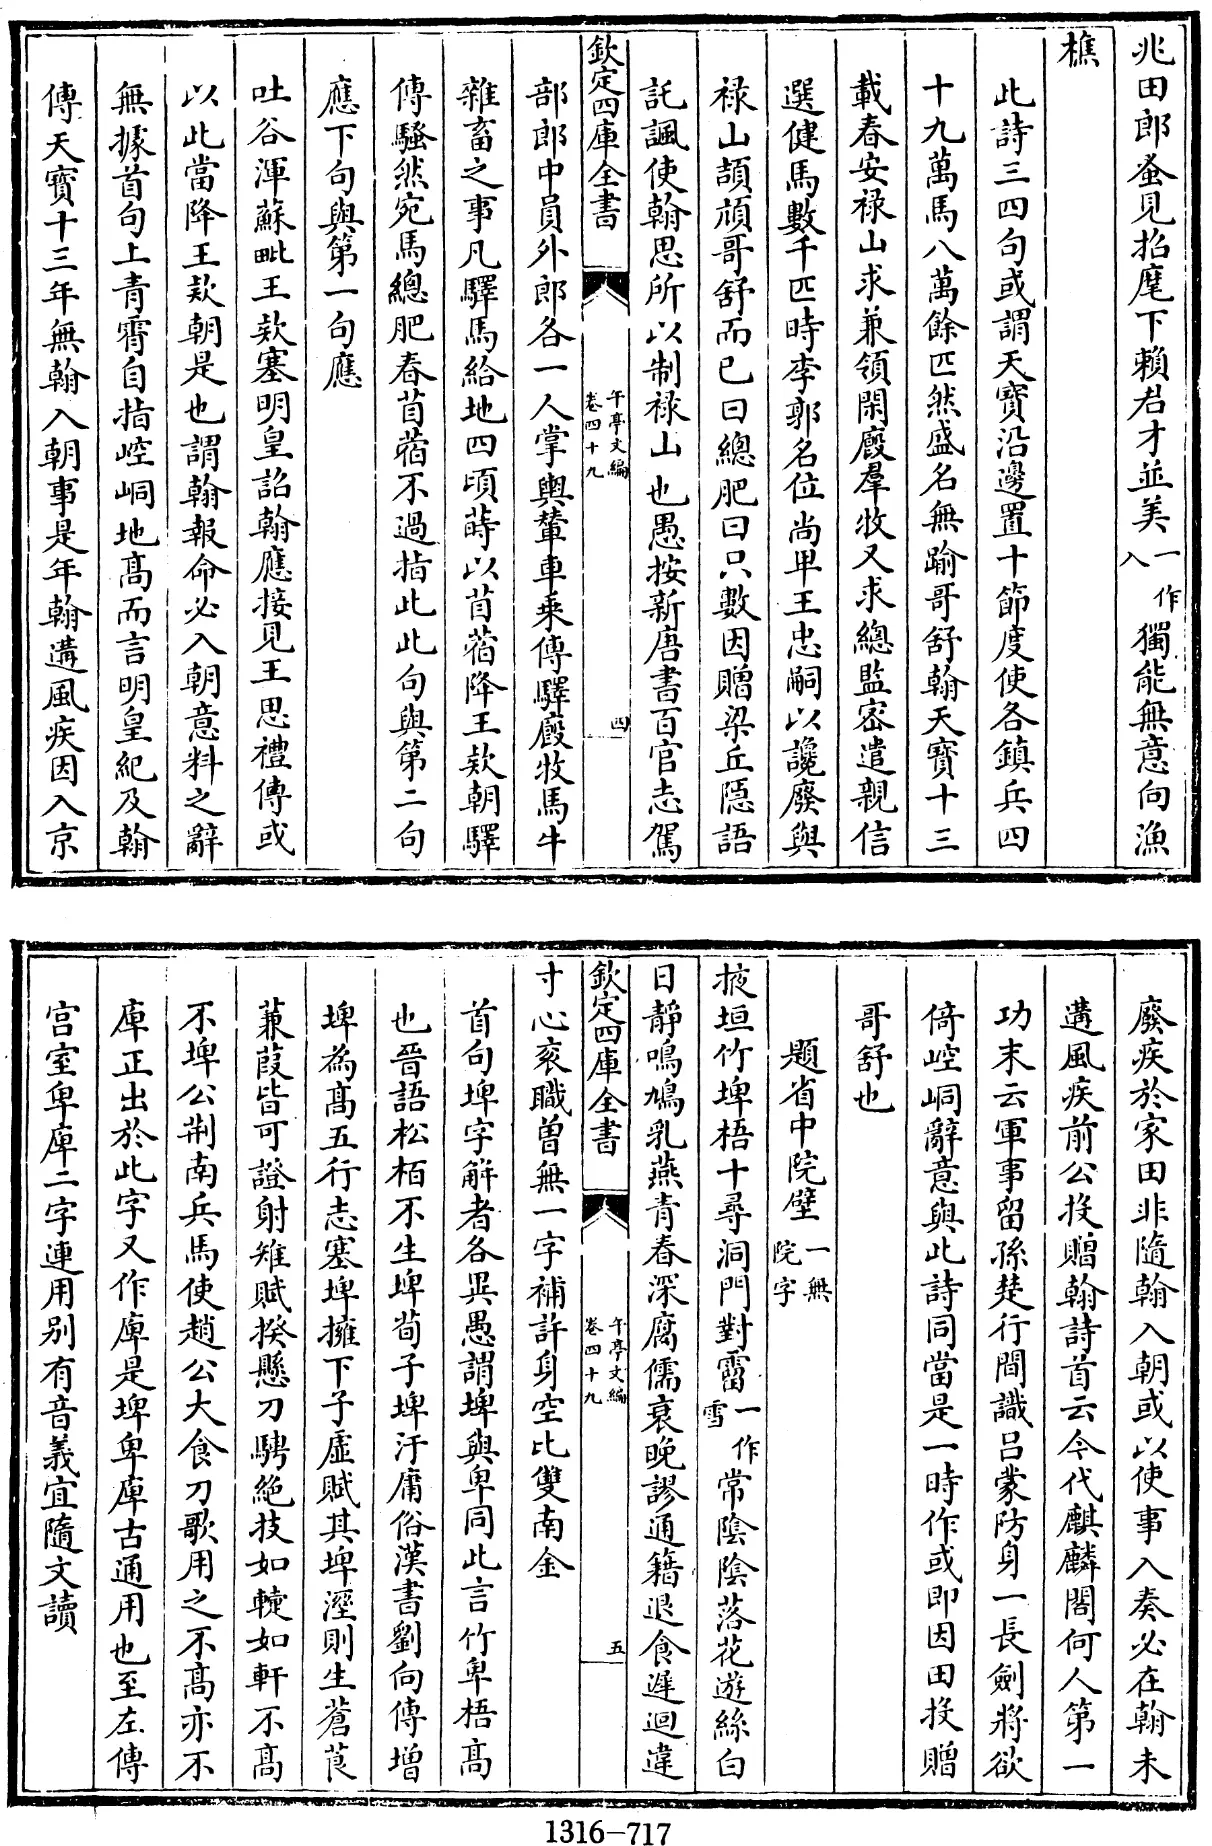 兆田郎蚤見招麾下賴君才並美一作入獨能無意向漁
樵
此詩三四句或謂天寶沿邊置十節度使各鎮兵四
十九萬馬八萬餘匹然盛名無踰哥舒翰天寶十三
載春安祿山求兼領閑廏羣牧又求總監密遣親信
選健馬數千匹時李郭名位尚卑王忠嗣以讒廢與
祿山頡頏哥舒而已曰總肥曰只數因贈梁丘隱語
託諷使翰思所以制祿山也愚按新唐書百官志駕
欽定四庫全書
午亭文編
卷四十九
四
部郎中員外郎各一人掌輿輦車乘傳驛廏牧馬牛
雜畜之事凡驛馬給地四頃蒔以苜蓿降王欵朝驛
傳騷然宛馬總肥春苜蓿不過指此此句與第二句
應下句與第一句應
吐谷渾蘇毗王欵塞明皇詔翰應接見王思禮傳或
以此當降王欵朝是也謂翰報命必入朝意料之辭
無據首句上青霄自指崆峒地髙而言明皇紀及翰
傳天寶十三年無翰入朝事是年翰遘風疾因入京
廢疾於家田非隨翰入朝或以使事入奏必在翰未
遘風疾前公投贈翰詩首云今代麒麟閣何人第一
功末云軍事留孫楚行間識呂蒙防身一長劍將欲
倚崆峒辭意與此詩同當是一時作或即因田投贈
哥舒也
題省中院壁一無院字
掖垣竹埤梧十尋洞門對霤一作雪常陰陰落花遊絲白
日靜鳴鳩乳燕青春深腐儒衰晚謬通籍退食遲迴違
欽定四庫全書
午亭文編
卷四十九
五
寸心衮職曾無一字補許身空比雙南金
首句埤字解者各異愚謂埤與卑同此言竹卑梧髙
也晉語松栢不生埤荀子埤汙庸俗漢書劉向傳增
埤為髙五行志塞埤擁下子虛賦其埤溼則生蒼莨
蒹葭皆可證射雉賦揆懸刀騁絶技如轋如軒不髙
不埤公荆南兵馬使趙公大食刀歌用之不髙亦不
庳正出於此字又作庳是埤卑庳古通用也至左傳
宫室卑庳二字連用别有音義宜隨文讀
1316-717